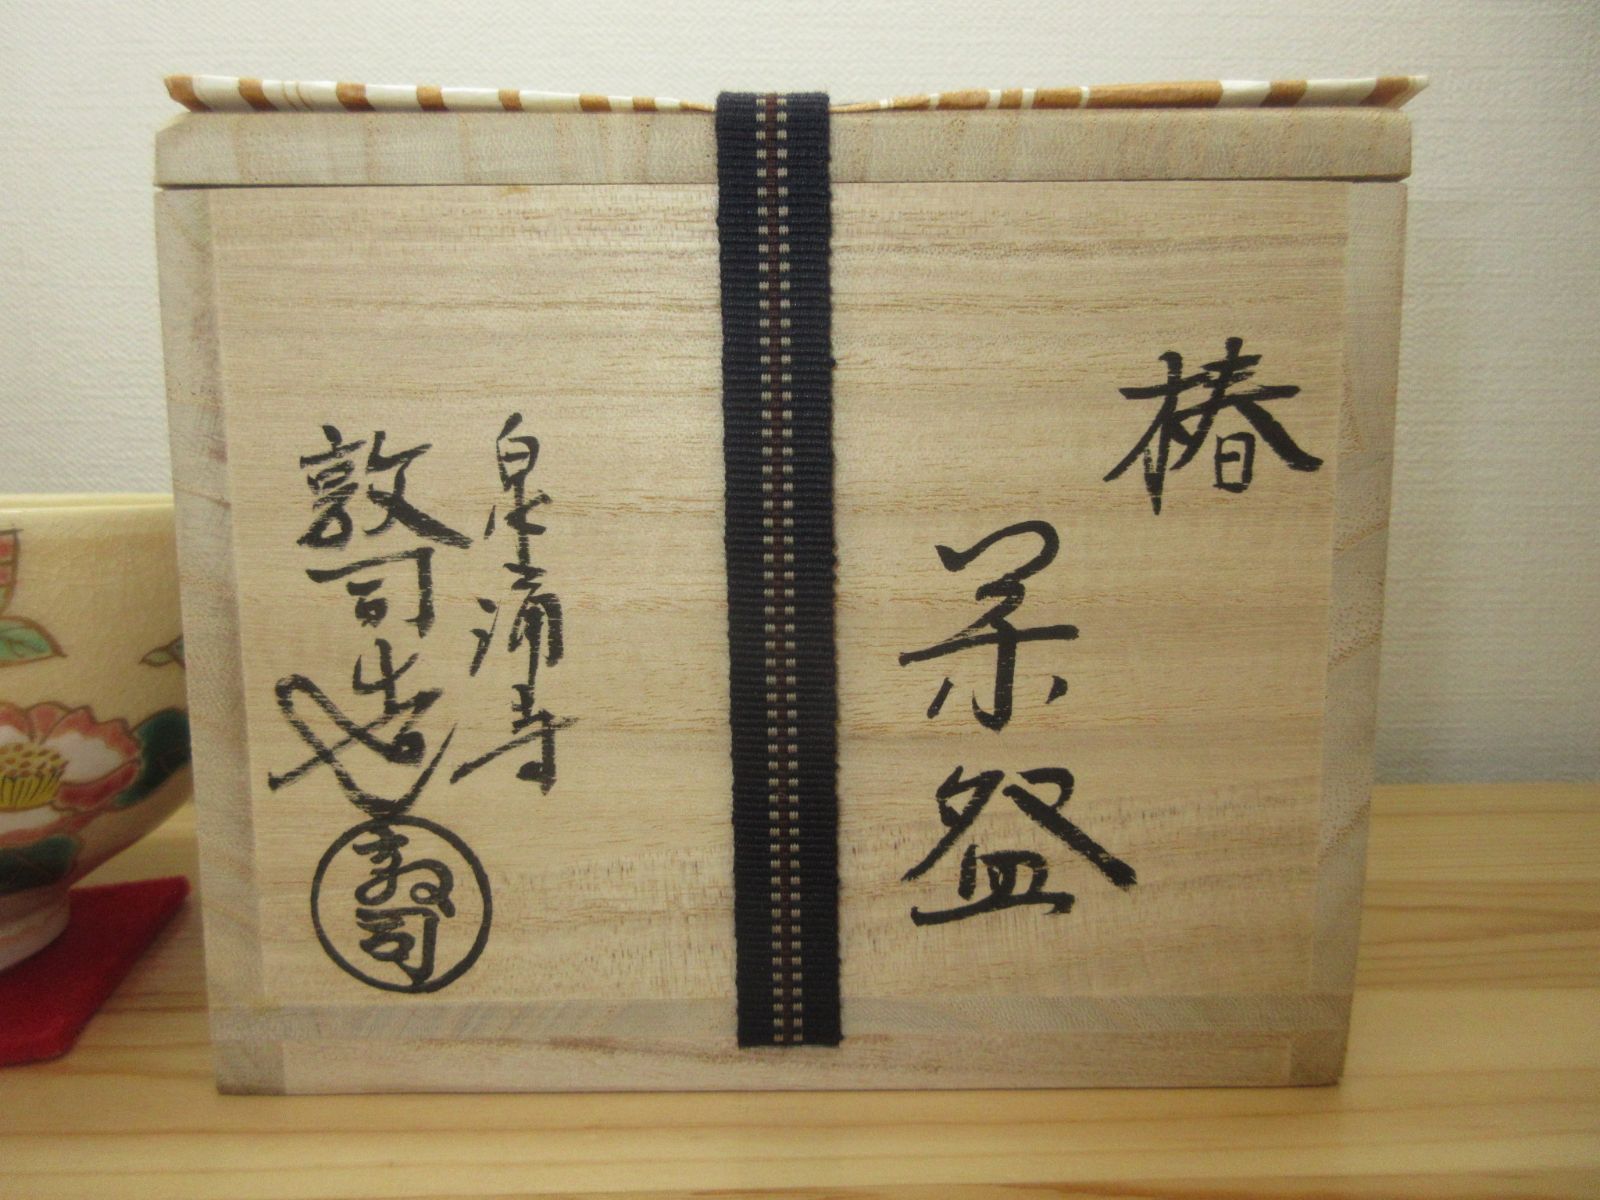 椿
茶盌
泉涌寺
敦司造
寿司